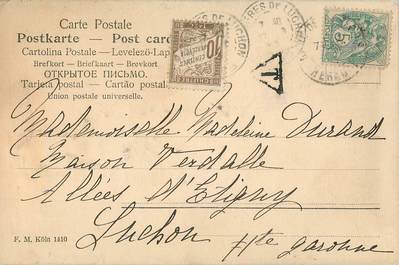 Carte Postale
Postkarte — Post card
Cartolina Postale — Levelező-Lap
Brefkort — Briefkaart — Brevkort
ОТКРЫТОЕ ПИСЬМО.
Tarjeta postal — Cartão postal
Union postale universelle.
10
T
5
Mademoiselle Madeleine Durand
Maison Verdalle
Allées d'Etigny
Luchon Hte garonne
F. M. Köln 1410